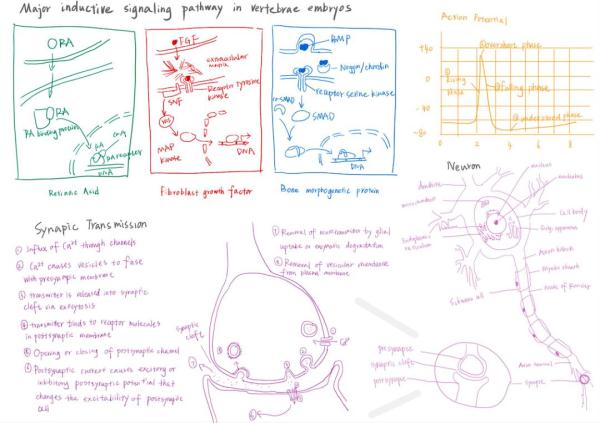 Major inductive signaling pathway in vertebrae embryos
RA
RA
RA binding protein
RA
RA receptor
DNA
Retinoic Acid
FGF
extracellular
Receptor tyrosine
kinase
SNT
MAP
kinase
DNA
Fibroblast growth factor
BMP
Noggin/chordin
receptor serine kinase
co-SMAD
SMAD
DNA
Bone morphogenetic protein
Action Potential
+40
0
-40
-80
② overshoot phase
① Rising
phase
③ falling phase
④ undershoot phase
0
2
4
6
8
Synapic Transmission
① Influx of Ca²⁺ through channels
② Ca²⁺ causes vesicles to fuse
with presynapic membrane
③ transmitter is released into synaptic
cleft via exocytosis
④ transmitter binds to receptor molecules
in postsynaptic membrane
⑤ Opening or closing of postsynaptic channel
⑥ Postsynaptic current causes excitory or
inhibitory postsynaptic potential that
changes the excitability of postsynaptic
cell
⑦ Removal of neurotransmitter by glial
uptake or enzymatic degradation
⑧ Removal of vesicular membrane
from plasma membrane
synaptic
cleft
Ca²⁺
Neuron
dendrite
mitochondrion
Endoplasmic
reticulum
nucleus
nucleolus
Cell body
Golgi apparatus
Axon hillock
Myelin sheath
Node of Ranvier
Schwann cell
Axon terminal
synapse
presynapse
synaptic cleft
postsynapse